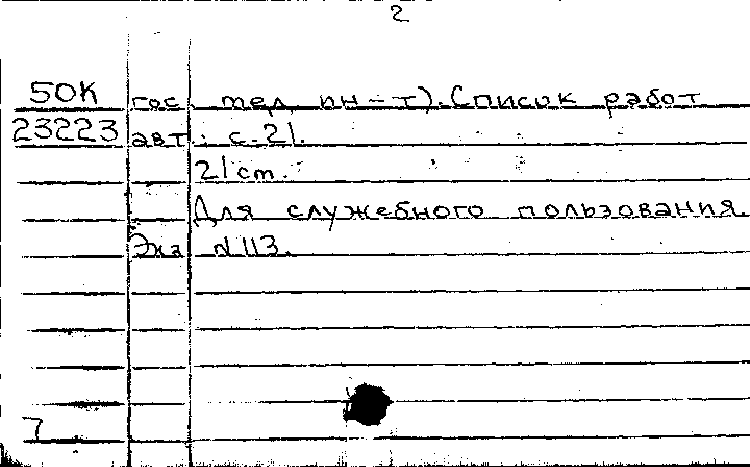 2
50К гос. мед. ин-т). Список работ
23223 авт.: с. 21.
21 см.
Для служебного пользования.
Экз N 113.
7